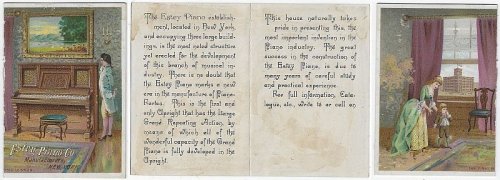 Estey Piano Co
Manufacturers
New York
The Estey Piano establish-
ment, located in New York,
and occupying three large build-
ings, is the most noted structure
yet erected for the development
of this branch of musical in-
dustry. There is no doubt that
the Estey Piano marks a new
era in the manufacture of Piano-
Fortes. This is the first and
only Upright that has the Genge
Grand Repeating Action, by
means of which all of the
wonderful capacity of the Grand
Piano is fully developed in the
Upright.
This house naturally takes
pride in presenting this, the
most important invention in the
Piano industry. The great
success in the construction of
the Estey Piano, is due to
many years of careful study
and practical experience.
For full information, Cata-
logue, etc., write to or call on